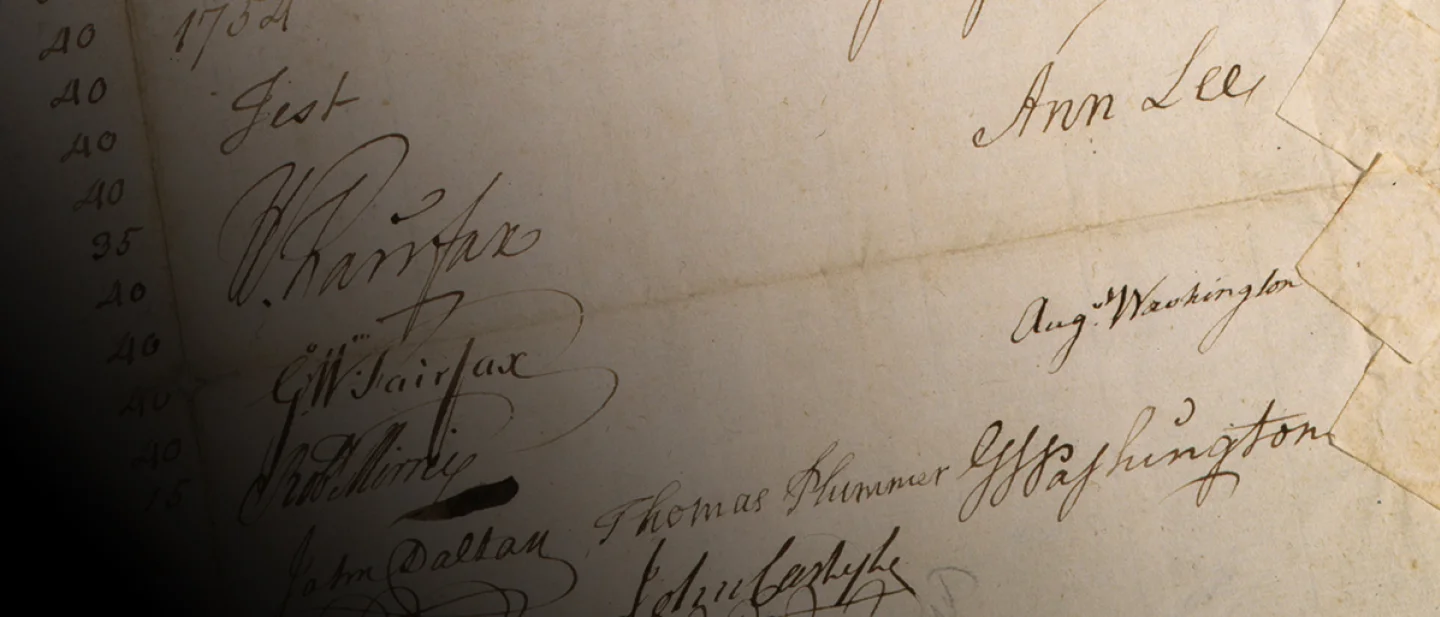 40 1754
40 Test Ann Lee
40
40 W. Fairfax
35
40 Augn. Washington
40 Go. Wm. Fairfax
40
40
15 Thomas Plummer GWashington
John Dalton John Carlyle